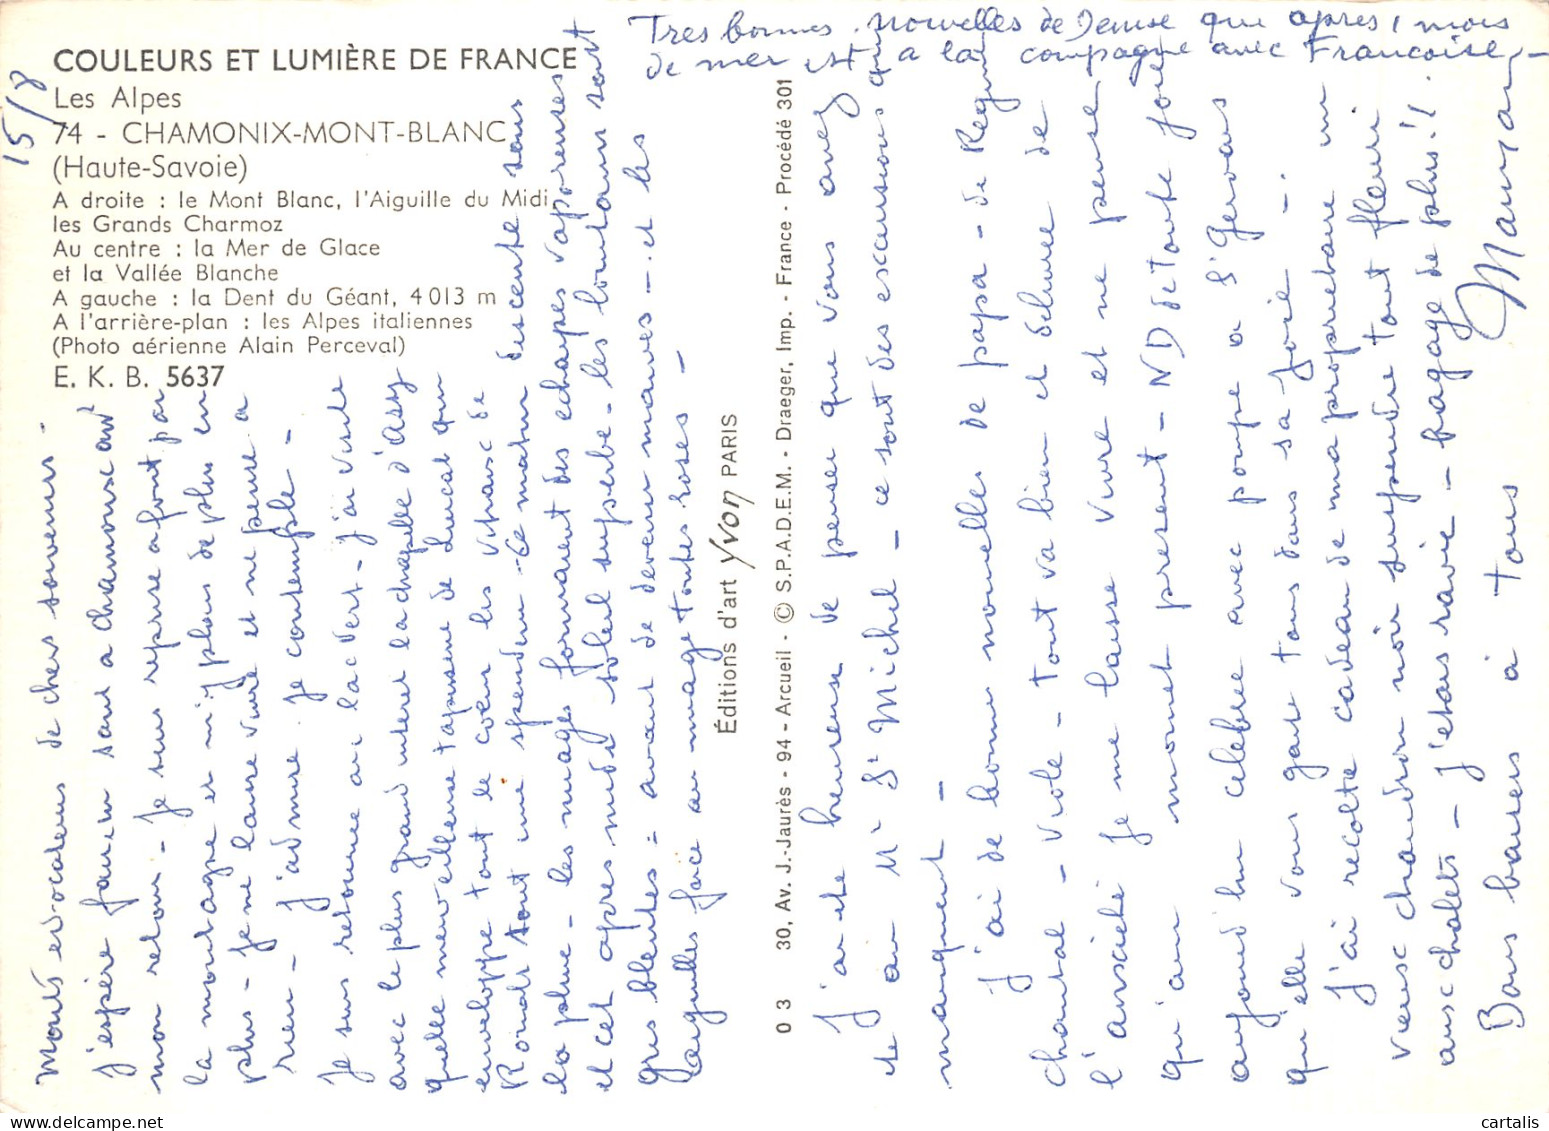 COULEURS ET LUMIÈRE DE FRANCE
Les Alpes
74 - CHAMONIX-MONT-BLANC
(Haute-Savoie)
A droite : le Mont Blanc, l'Aiguille du Midi
les Grands Charmoz
Au centre : la Mer de Glace
et la Vallée Blanche
A gauche : la Dent du Géant, 4 013 m
A l'arrière-plan : les Alpes italiennes
(Photo aérienne Alain Perceval)
E. K. B. 5637
15/8
Monts evocateurs de chers souvenirs -
J'espère faire un saut a Chamonix avt
mon retour - Je suis reprise a font par
la montagne et m'y plais de plus en
plus - Je me laisse vivre et ne pense a
rien - J'admire Je contemple -
Je suis retournée au lac Vert - J'ai visité
avec le plus grand interet la chapelle d'Assy
quelle merveilleuse tapisserie de Lurcat qui
enveloppe tout le cœur les vitraux de
Rouault sont une splendeur - Ce matin descente sous
la pluie - les nuages formaient des echarpes vaporeuses
et cet apres midi soleil superbe - les lointains sont
gris bleutés = avant de devenir mauves - et les
aiguilles face au nuage toutes roses -
Éditions d'art Yvon PARIS
0 3 30, Av. J.-Jaurès - 94 - Arcueil - © S.P.A.D.E.M. - Draeger, Imp. - France - Procédé 301
Tres bonnes nouvelles de Denise qui apres 1 mois
de mer est a la campagne avec Francoise -
J'ai été heureuse de penser que vous avez
été au Mt St Michel - ce sont des excursions qui
marquent -
J'ai de bonne nouvelles de papa - de Regine
chantal - Viole - Tout va bien et delivree de
l'anxiété Je me laisse vivre et ne pense
qu'au moment present - ND de Toute Joie
aujourd hui celebree avec pompe a St Gervais
qu'elle vous garde tous dans sa joie -.
J'ai recolté cadeau de ma propriétaire un
vieux chaudron noir suspendre tout fleuri
aux chalets - J'etais ravie - bagage de plus !!
Bons baisers à tous Maman